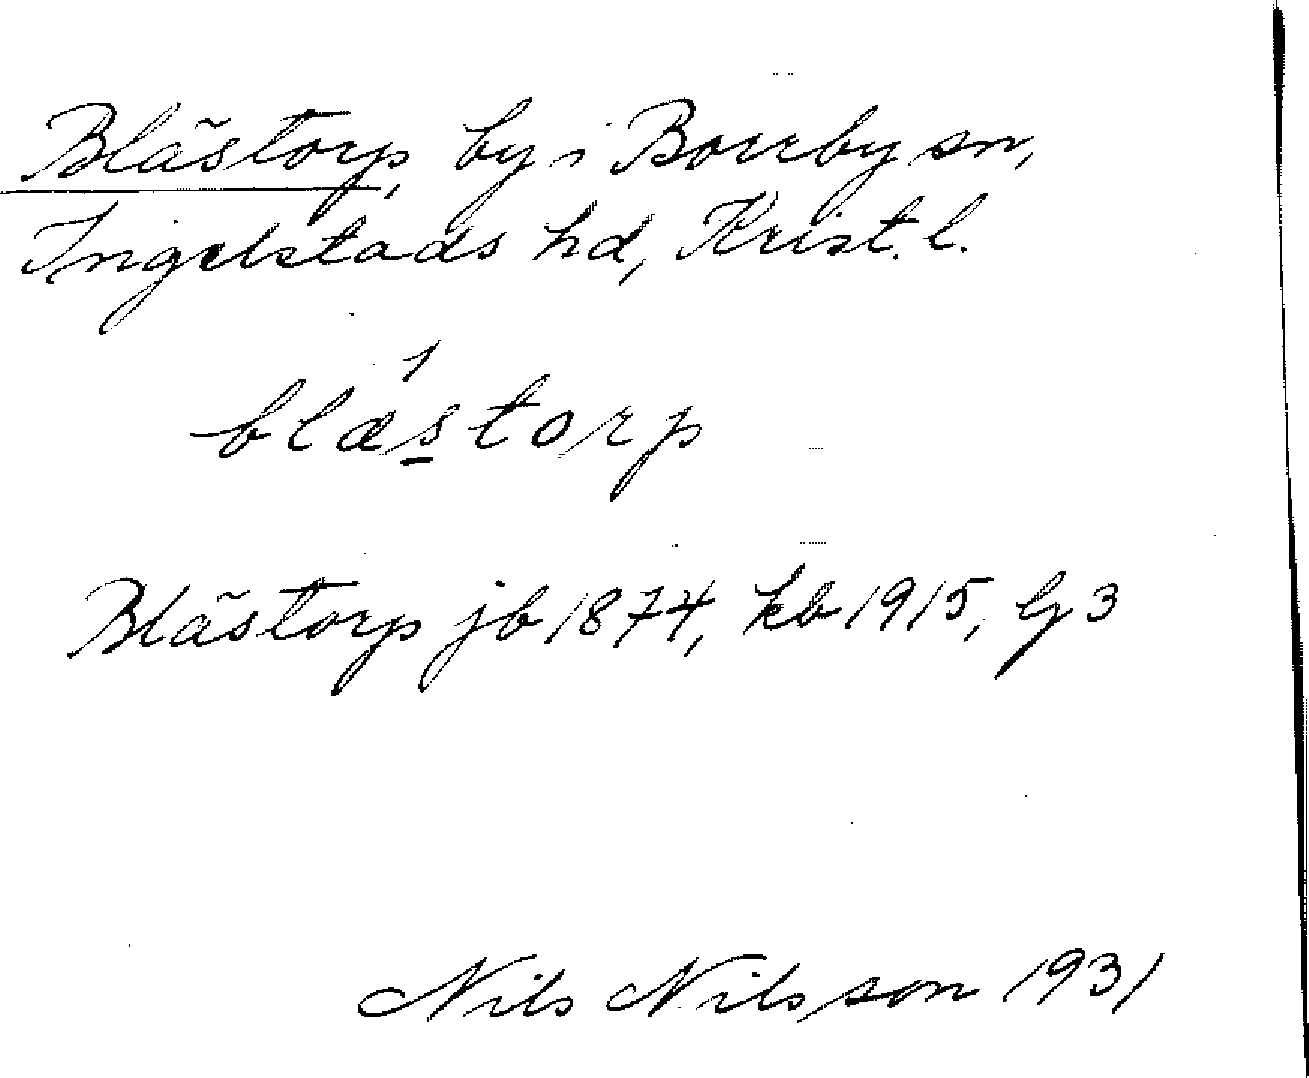 Blästorp, by i Borrby sn,
Ingelstads hd, Krist. l.
blæ´storp
Blästorp jb 1874, kb 1915, Bl 3
Nils Nilsson 1931